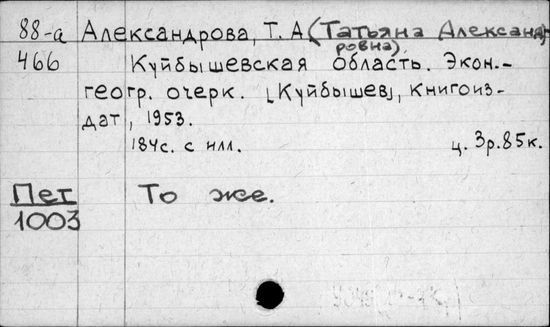 88-а Александрова, Т. А (Татьяна Александ-
ровна)
466 Куйбышевская область. Экон.-
геогр. очерк. [Куйбышев], Книгоиз-
дат, 1953.
184с. с илл. ц. 3р.85к.
Пет То же.
1003